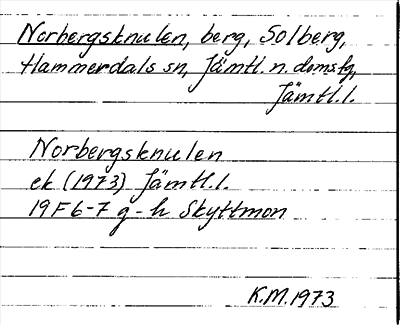 Norbergsknulen, berg, Solberg,
Hammerdals sn, Jämtl. n. domsg,
Jämtl. l.
Norbergsknulen
ek (1973) Jämtl. l.
19F 6-7 g-h Skyttmon
K.M. 1973